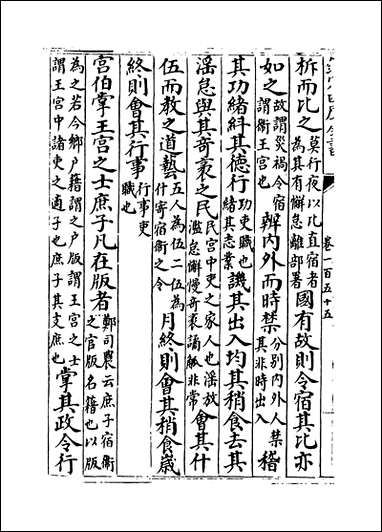 卷一百五十五
柝而比之莫行夜以比直宿者為其有懈怠離部署國有故則令宿其比亦
如之故謂災禍令宿謂衛王宮也辨內外而時禁分別內外人禁其非時出入稽
其功緒糾其德行功吏職也緒其志業譏其出入均其稍食去其
淫怠與其奇衺之民民宮中吏之家人也淫放濫怠懈慢奇衺譎觚非常會其什
伍而教之道藝五人為伍二伍為什寄宿衛之令月終則會其稍食嵗
終則會其行事行事吏職也
宫伯掌王宫之士庶子凡在版者鄭司農云庶子宿衛之官版名籍也以版
為之若今鄉户籍謂之户版謂王宫之士謂王宫中諸吏之適子也庶子其支庶也掌其政令行